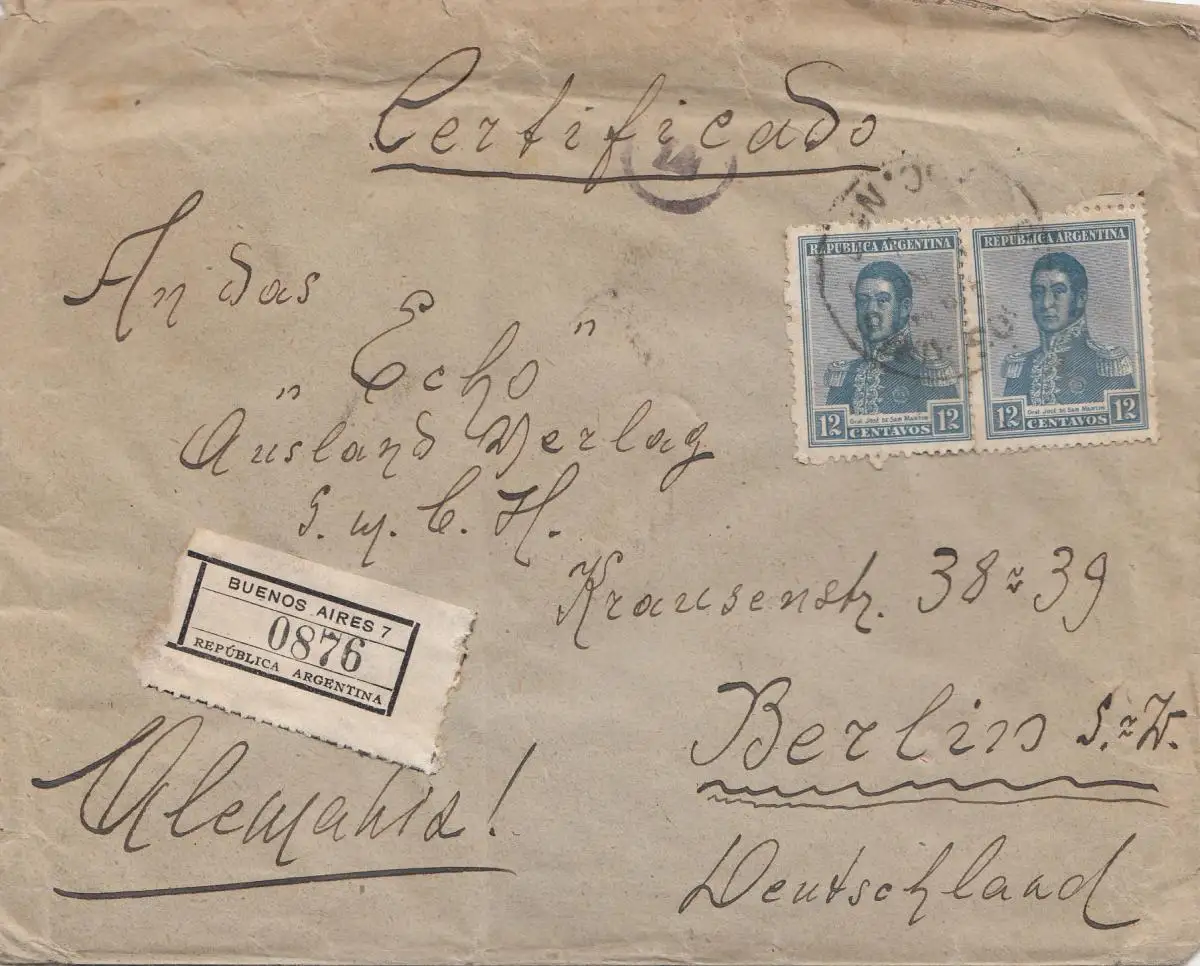 Certificado
24
An das
„Echo"
Ausland Verlag
G. m. b. H.
Krausenstr. 38-39
Berlin S.-W.
Deutschland
Alemania!
REPUBLICA ARGENTINA
Gral. José de San Martin
12 CENTAVOS 12
REPUBLICA ARGENTINA
Gral. José de San Martin
12 CENTAVOS 12
BUENOS AIRES 7
0876
REPÚBLICA ARGENTINA